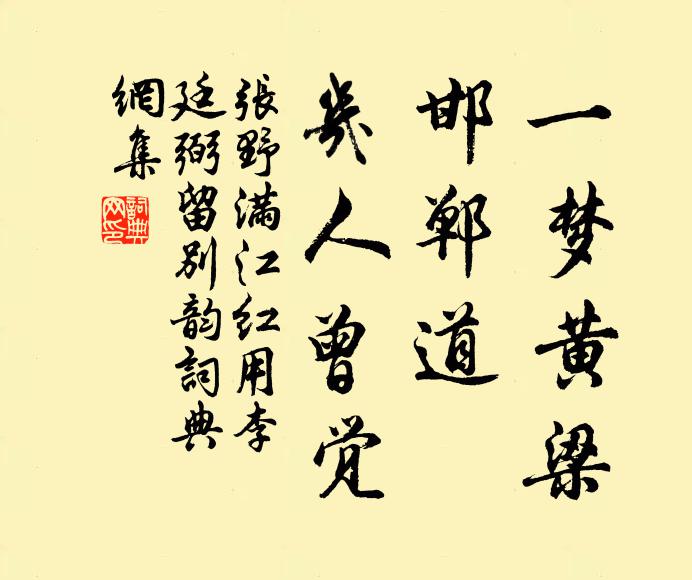 一梦黄粱
邯郸道
几人曾觉
張野滿江红用李
廷弼留别韵詞典
網集
詞典网印